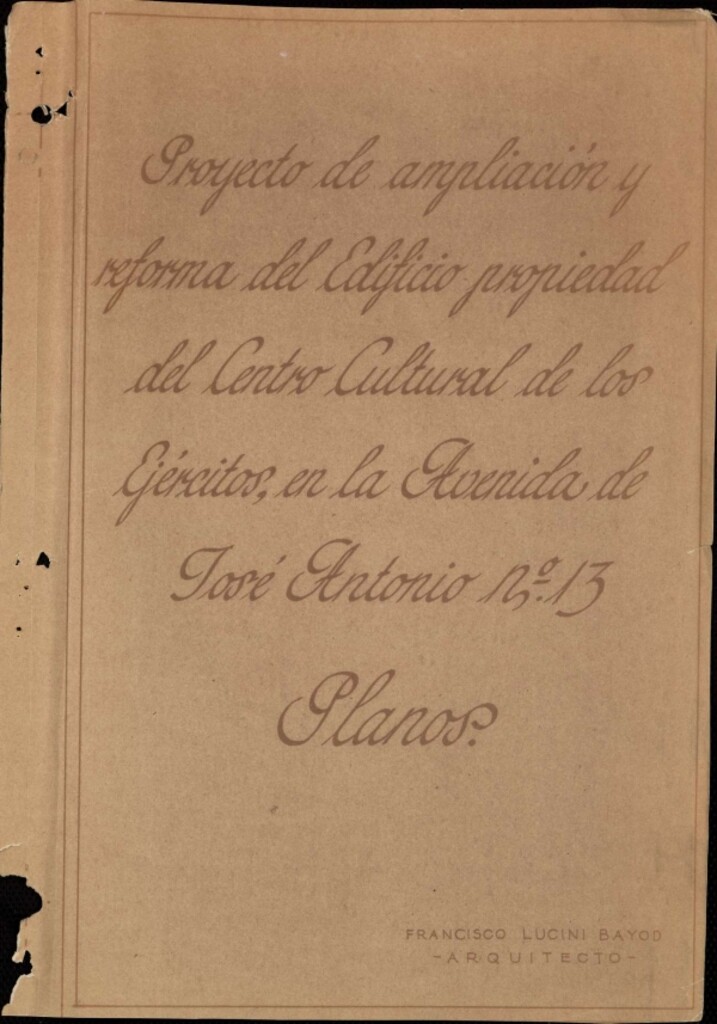 Proyecto de ampliación y
reforma del Edificio propiedad
del Centro Cultural de los
Ejércitos, en la Avenida de
José Antonio nº. 13
Planos.
FRANCISCO LUCINI BAYOD
-ARQUITECTO-